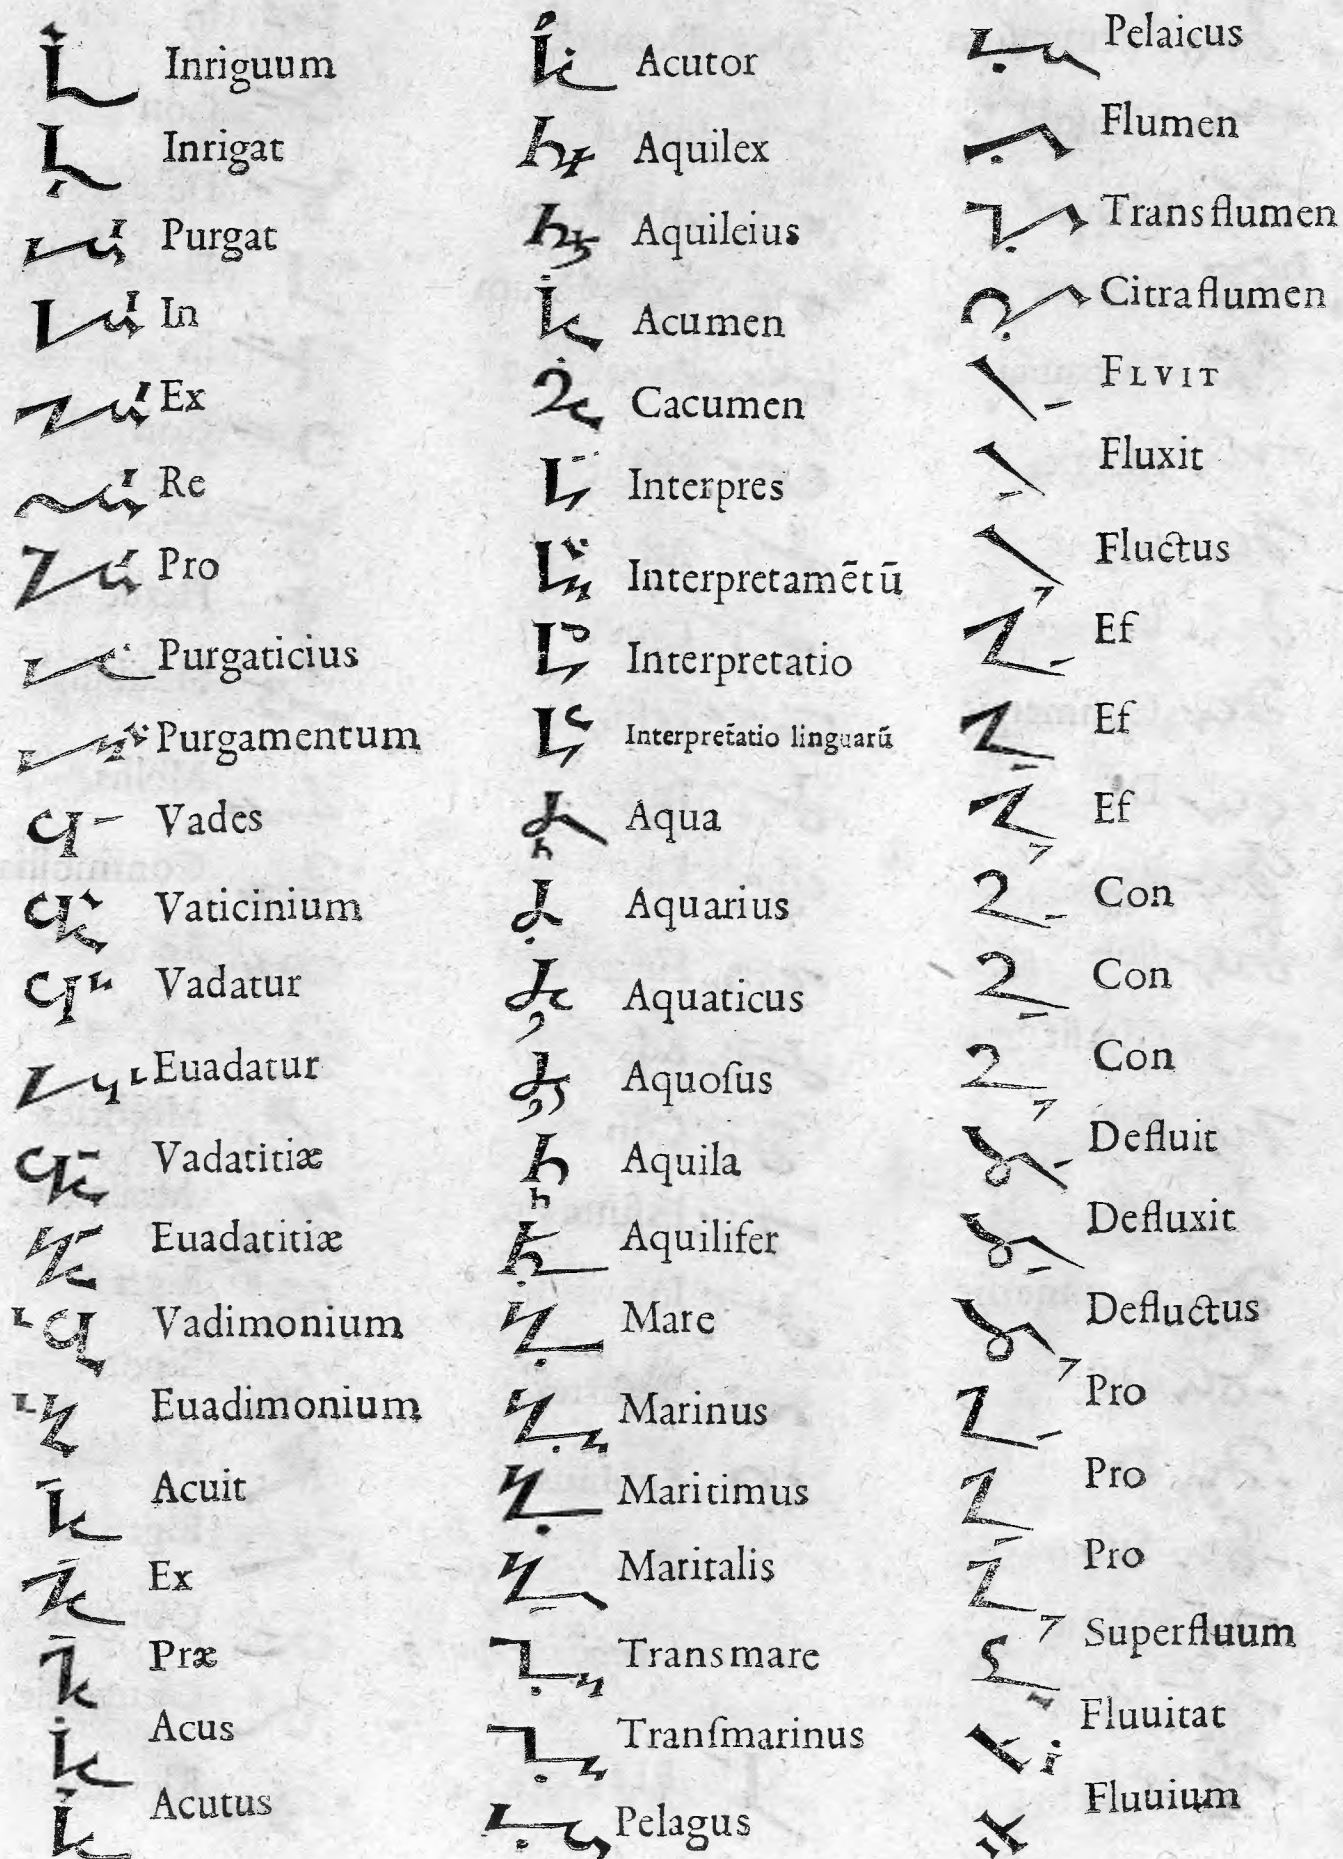 Inriguum
Inrigat
Purgat
In
Ex
Re
Pro
Purgaticius
Purgamentum
Vades
Vaticinium
Vadatur
Euadatur
Vadatitiæ
Euadatitiæ
Vadimonium
Euadimonium
Acuit
Ex
Præ
Acus
Acutus
Acutor
Aquilex
Aquileius
Acumen
Cacumen
Interpres
Interpretamētū
Interpretatio
Interpretatio linguarū
Aqua
Aquarius
Aquaticus
Aquoſus
Aquila
Aquilifer
Mare
Marinus
Maritimus
Maritalis
Transmare
Tranſmarinus
Pelagus
Pelaicus
Flumen
Transflumen
Citraflumen
FLVIT
Fluxit
Fluctus
Ef
Ef
Ef
Con
Con
Con
Defluit
Defluxit
Defluctus
Pro
Pro
Pro
Superfluum
Fluuitat
Fluuium